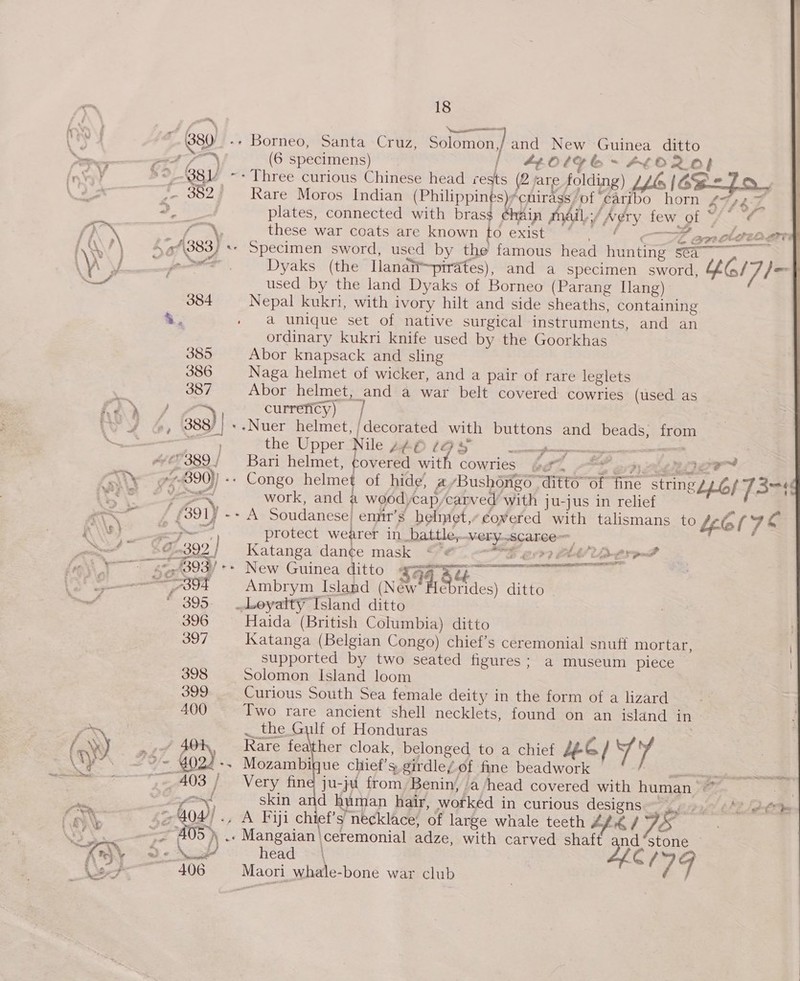 18
380 Borneo, Santa Cruz, Solomon, and New Guinea ditto
(6 specimens)
381 Three curious Chinese head rests (2 are folding)
382 Rare Moros Indian (Philippines) cuirass of caribo horn
plates, connected with brass chain mail; very few of
these war coats are known to exist
383 Specimen sword, used by the famous head hunting sea
Dyaks (the Ilanan pirates), and a specimen sword,
used by the land Dyaks of Borneo (Parang Ilang)
384 Nepal kukri, with ivory hilt and side sheaths, containing
a unique set of native surgical instruments, and an
ordinary kukri knife used by the Goorkhas
385 Abor knapsack and sling
386 Naga helmet of wicker, and a pair of rare leglets
387 Abor helmet, and a war belt covered cowries (used as
currency)
388 Nuer helmet, decorated with buttons and beads, from
the Upper Nile
389 Bari helmet, covered with cowries
390 Congo helmet of hide, a Bushongo ditto of fine string
work, and a wood cap carved with ju-jus in relief
391 A Soudanese emir's helmet, covered with talismans to
protect wearer in battle, very scarce
392 Katanga dance mask
393 New Guinea ditto
394 Ambrym Island (New Hebrides) ditto
395 Loyalty Island ditto
396 Haida (British Columbia) ditto
397 Katanga (Belgian Congo) chief's ceremonial snuff mortar,
supported by two seated figures; a museum piece
398 Solomon Island loom
399 Curious South Sea female deity in the form of a lizard
400 Two rare ancient shell necklets, found on an island in
the Gulf of Honduras
401 Rare feather cloak, belonged to a chief
402 Mozambique chief's girdle of fine beadwork
403 Very fine ju-ju from Benin, a head covered with human
skin and human hair, worked in curious designs
404 A Fiji chief's necklace, of large whale teeth
405 Mangaian ceremonial adze, with carved shaft and stone
head
406 Maori whale-bone war club